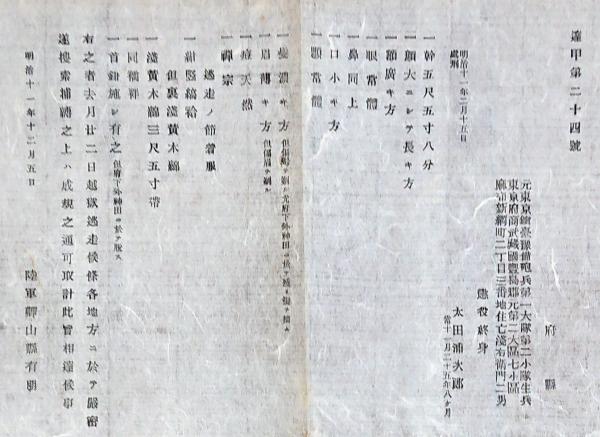 達甲第二十四號
府縣
元東京鎮臺豫備砲兵第一大隊第二小隊生兵
東京府商武蔵國豊島郡元第二大區七小區
麻布新網町二丁目三番地住亡淺右衛門二男
懲役終身
太田浦次郎
當十一月二十五年八ヶ月
明治十一年二月十五日
處刑
一幹五尺五寸八分
一顔大ニシテ長キ方
一額廣キ方
一眼常體
一鼻同上
一口小キ方
一頤常體
一髪濃キ方
一眉薄キ方
一痘天然
一禪宗
逃走ノ節着服
一紺竪縞袷
但裏淺黄木綿
一淺黄木綿三尺五寸帶
一同襦袢
一首鈕施シ有之 但府下外神田ニ於テ脱ス
右之者去月廿二日越獄逃走候條各地方ニ於テ嚴密
遂搜索捕縛之上ハ成規之通可取計此旨相達候事
明治十一年十二月五日
陸軍卿山縣有朋